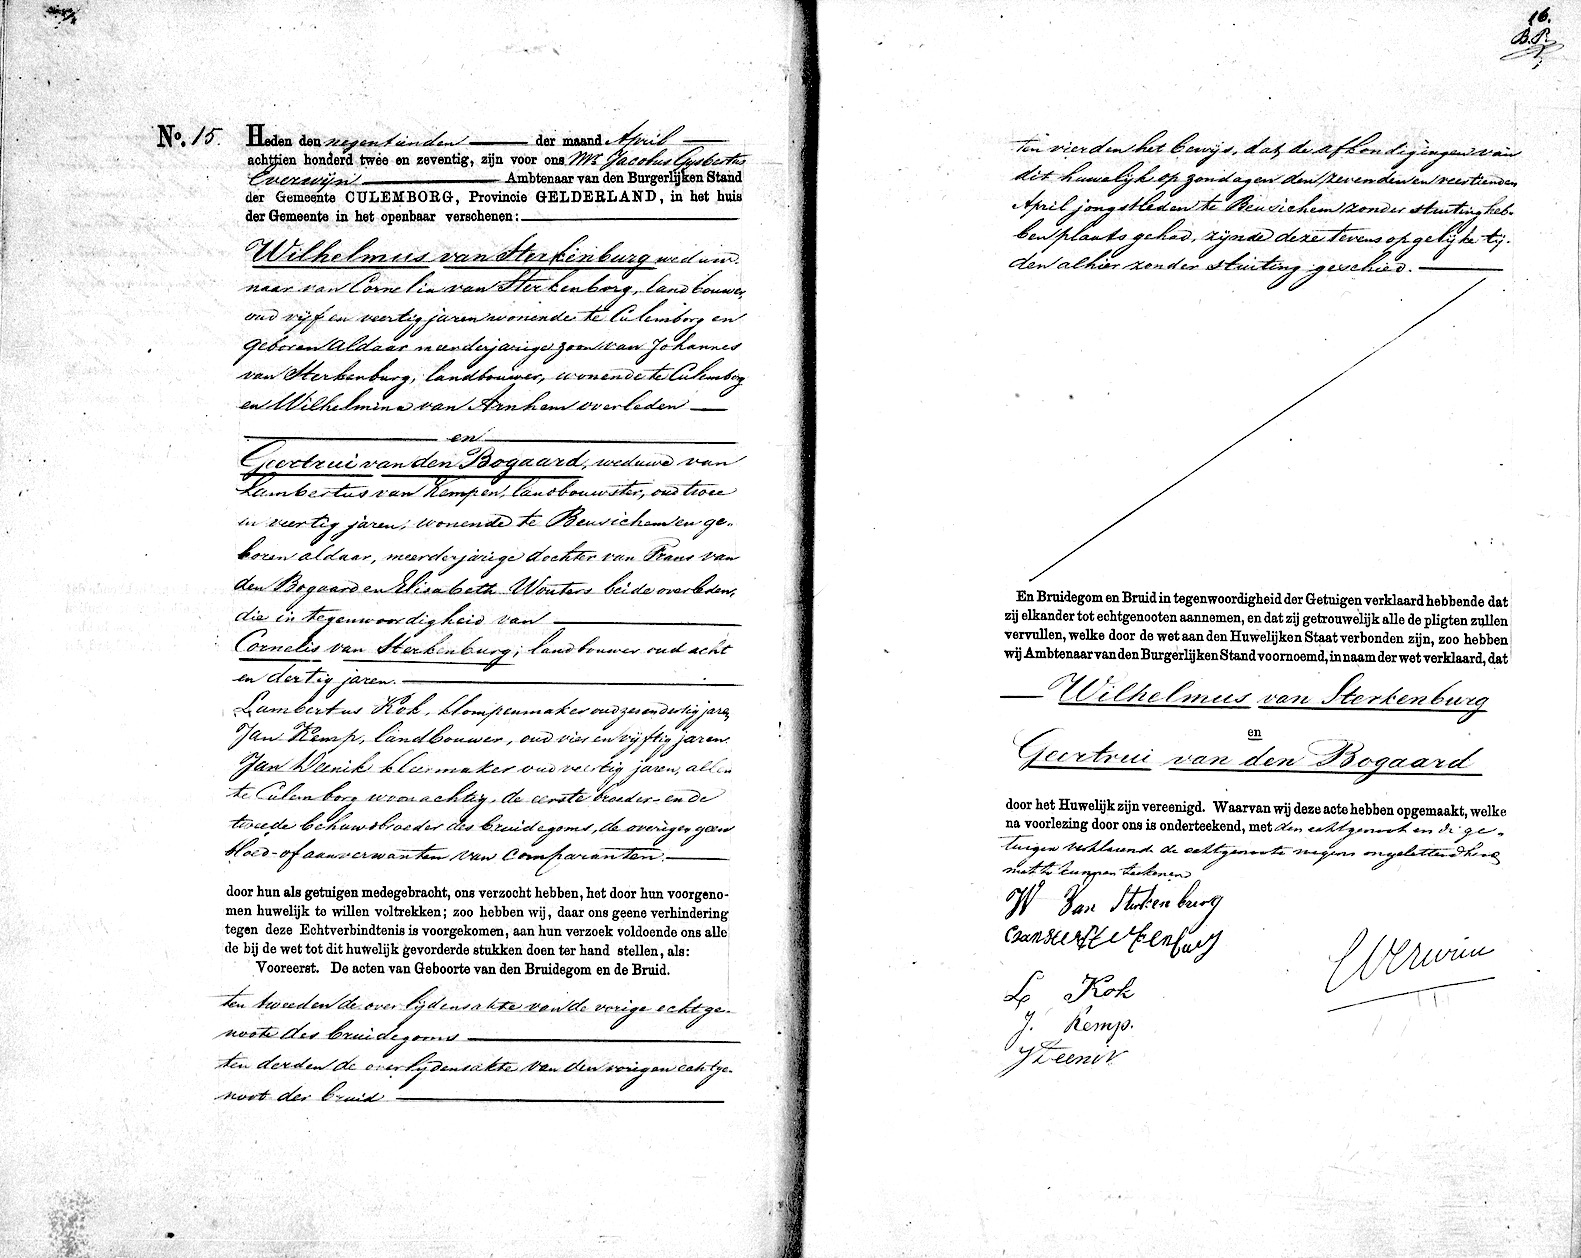 No. 15. Heden den negentienden der maand April
achttien honderd twee en zeventig, zijn voor ons Mr. Jacobus Gysbertus
Everwijn Ambtenaar van den Burgerlijken Stand
der Gemeente CULEMBORG, Provincie GELDERLAND, in het huis
der Gemeente in het openbaar verschenen:
Wilhelmus van Sterkenburg weduw-
naar van Cornelia van Sterkenborg, landbouwer,
oud vijf en veertig jaren wonende te Culemborg en
geboren aldaar meerderjarige zoon van Johannes
van Sterkenburg, landbouwer, wonende te Culemborg
en Wilhelmina van Arnhem overleden
en
Geertrui van den Bogaard, weduwe van
Lambertus van Kempen, landbouwster, oud twee
en veertig jaren, wonende te Beusichem en ge-
boren aldaar, meerderjarige dochter van Frans van
den Bogaard en Elisabeth Wouters beide overleden,
die in tegenwoordigheid van
Cornelis van Sterkenburg, landbouwer oud acht
en dertig jaren.
Lambertus Kok, klompenmaker oud zes en dertig jaren
Jan Kemp, landbouwer, oud vier en vijftig jaren
Jan kleermaker oud veertig jaren, allen
te Culemborg woonachtig, de eerste broeder- en de
tweede behuwdbroeder des bruidegoms, de overigen geen
bloed- of aanverwanten van comparanten.
door hun als getuigen medegebracht, ons verzocht hebben, het door hun voorgeno-
men huwelijk te willen voltrekken; zoo hebben wij, daar ons geene verhindering
tegen deze Echtverbindtenis is voorgekomen, aan hun verzoek voldoende ons alle
de bij de wet tot dit huwelijk gevorderde stukken doen ter hand stellen, als:
Vooreerst. De acten van Geboorte van den Bruidegom en de Bruid.
ten tweeden de overlijdensakte van de vorige echtge-
noote des bruidegoms
ten derden de overlijdensakte van den vorigen echtge-
noot der bruid
16.
B.R.
ten vierden het bewijs, dat de afkondigingen van
dit huwelijk op zondagen den zevenden en veertienden
April jongstleden te Beusichem zonder stuiting heb-
ben plaats gehad, zijnde deze tevens op gelijke tij-
den alhier zonder stuiting geschied.
En Bruidegom en Bruid in tegenwoordigheid der Getuigen verklaard hebbende dat
zij elkander tot echtgenooten aannemen, en dat zij getrouwelijk alle de pligten zullen
vervullen, welke door de wet aan den Huwelijken Staat verbonden zijn, zoo hebben
wij Ambtenaar van den Burgerlijken Stand voornoemd, in naam der wet verklaard, dat
Wilhelmus van Sterkenburg
en
Geertrui van den Bogaard
door het Huwelijk zijn vereenigd. Waarvan wij deze acte hebben opgemaakt, welke
na voorlezing door ons is onderteekend, met den echtgenoot en de ge-
tuigen verklarende de echtgenoote wegens ongeletterdheid
niet te kunnen teekenen
W van Sterkenburg
C van Sterkenburg
L Kok
J. Kemp.
Everwijn